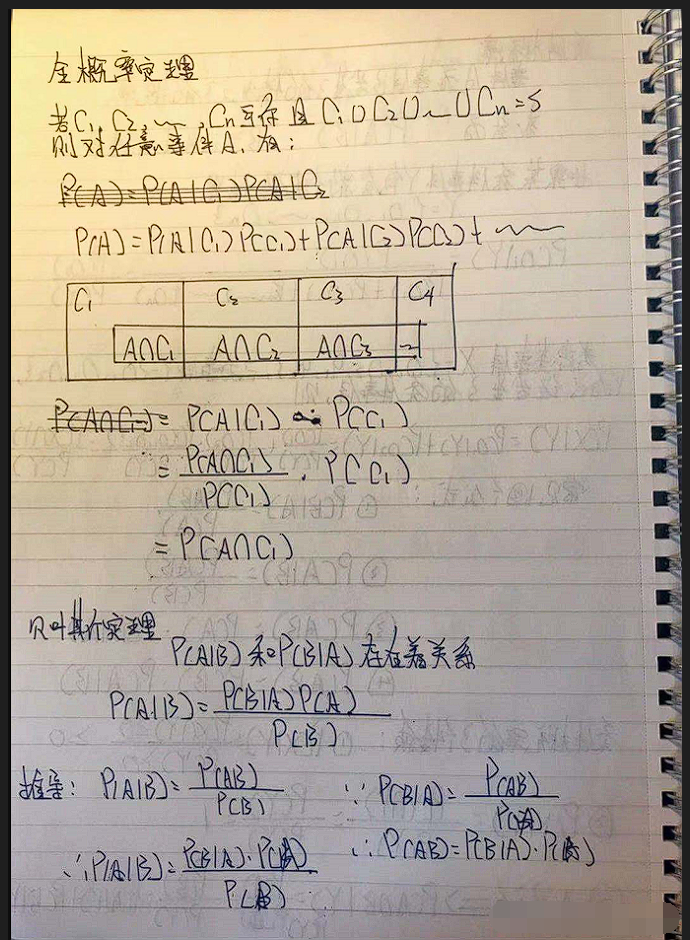 全概率定理
若C₁, C₂, ~~, Cn互斥且 C₁∪C₂∪~∪Cn=S
则对任意事件A, 有:
P(A)=P(A|C₁)P(A|C₂
P(A)=P(A|C₁)P(C₁)+P(A|C₂)P(C₂)+ ~~~
C₁ C₂ C₃ C4
A∩C₁ A∩C₂ A∩C₃
P(A∩C₁)= P(A|C₁) · P(C₁)
= P(A∩C₁)/P(C₁) · P(C₁)
= P(A∩C₁)
贝叶斯定理
P(A|B) 和P(B|A) 存在着关系
P(A|B)= P(B|A)P(A)/P(B)
推导: P(A|B)= P(AB)/P(B) ∵ P(B|A)= P(AB)/P(A)
∴P(A|B)= P(B|A)·P(A)/P(B) ∴P(AB)=P(B|A)·P(A)